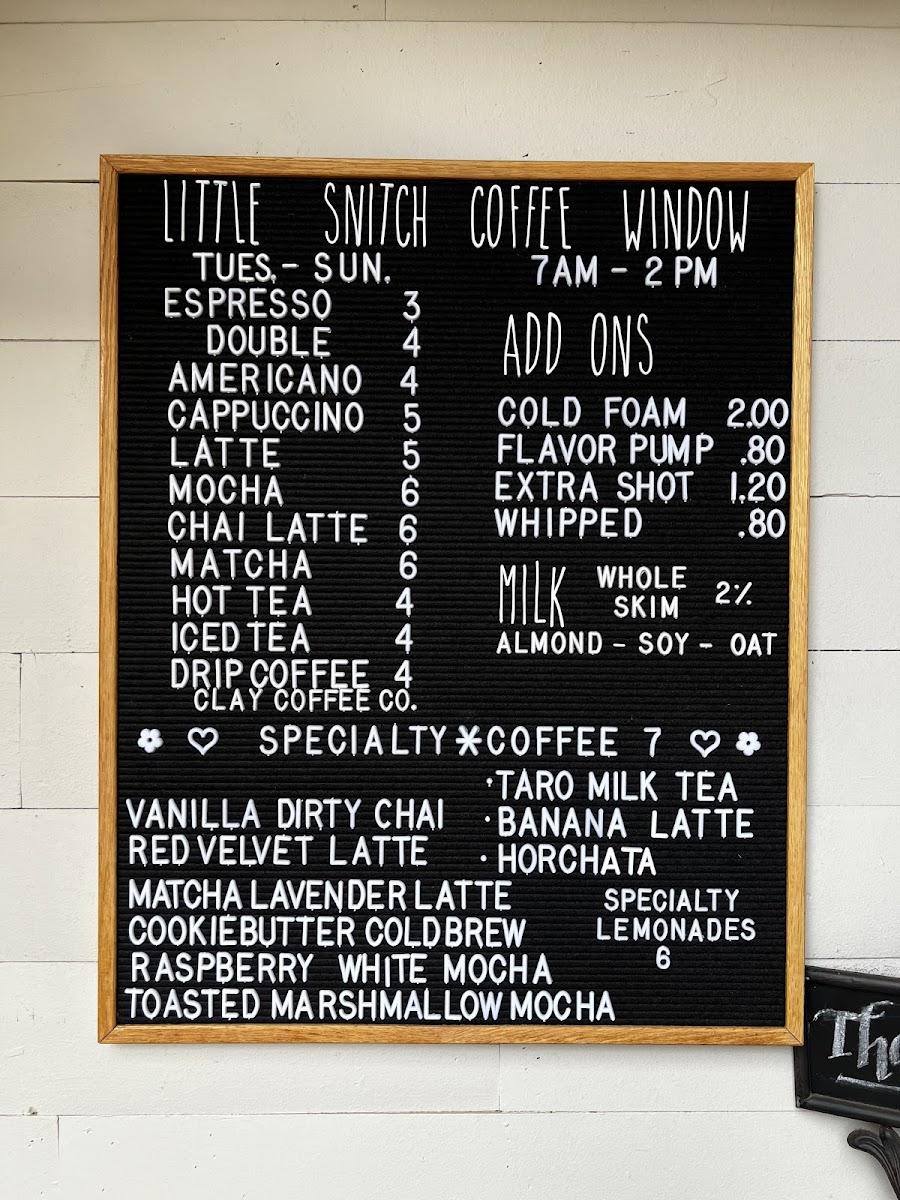 LITTLE SNITCH COFFEE WINDOW
TUES.- SUN. 7AM - 2 PM
ESPRESSO 3
DOUBLE 4
AMERICANO 4
CAPPUCCINO 5
LATTE 5
MOCHA 6
CHAI LATTE 6
MATCHA 6
HOT TEA 4
ICED TEA 4
DRIP COFFEE 4
CLAY COFFEE CO.
ADD ONS
COLD FOAM 2.00
FLAVOR PUMP .80
EXTRA SHOT 1.20
WHIPPED .80
MILK WHOLE 2%
SKIM
ALMOND - SOY - OAT
SPECIALTY*COFFEE 7
VANILLA DIRTY CHAI
RED VELVET LATTE
MATCHA LAVENDER LATTE
COOKIEBUTTER COLDBREW
RASPBERRY WHITE MOCHA
TOASTED MARSHMALLOW MOCHA
·TARO MILK TEA
·BANANA LATTE
·HORCHATA
SPECIALTY
LEMONADES
6